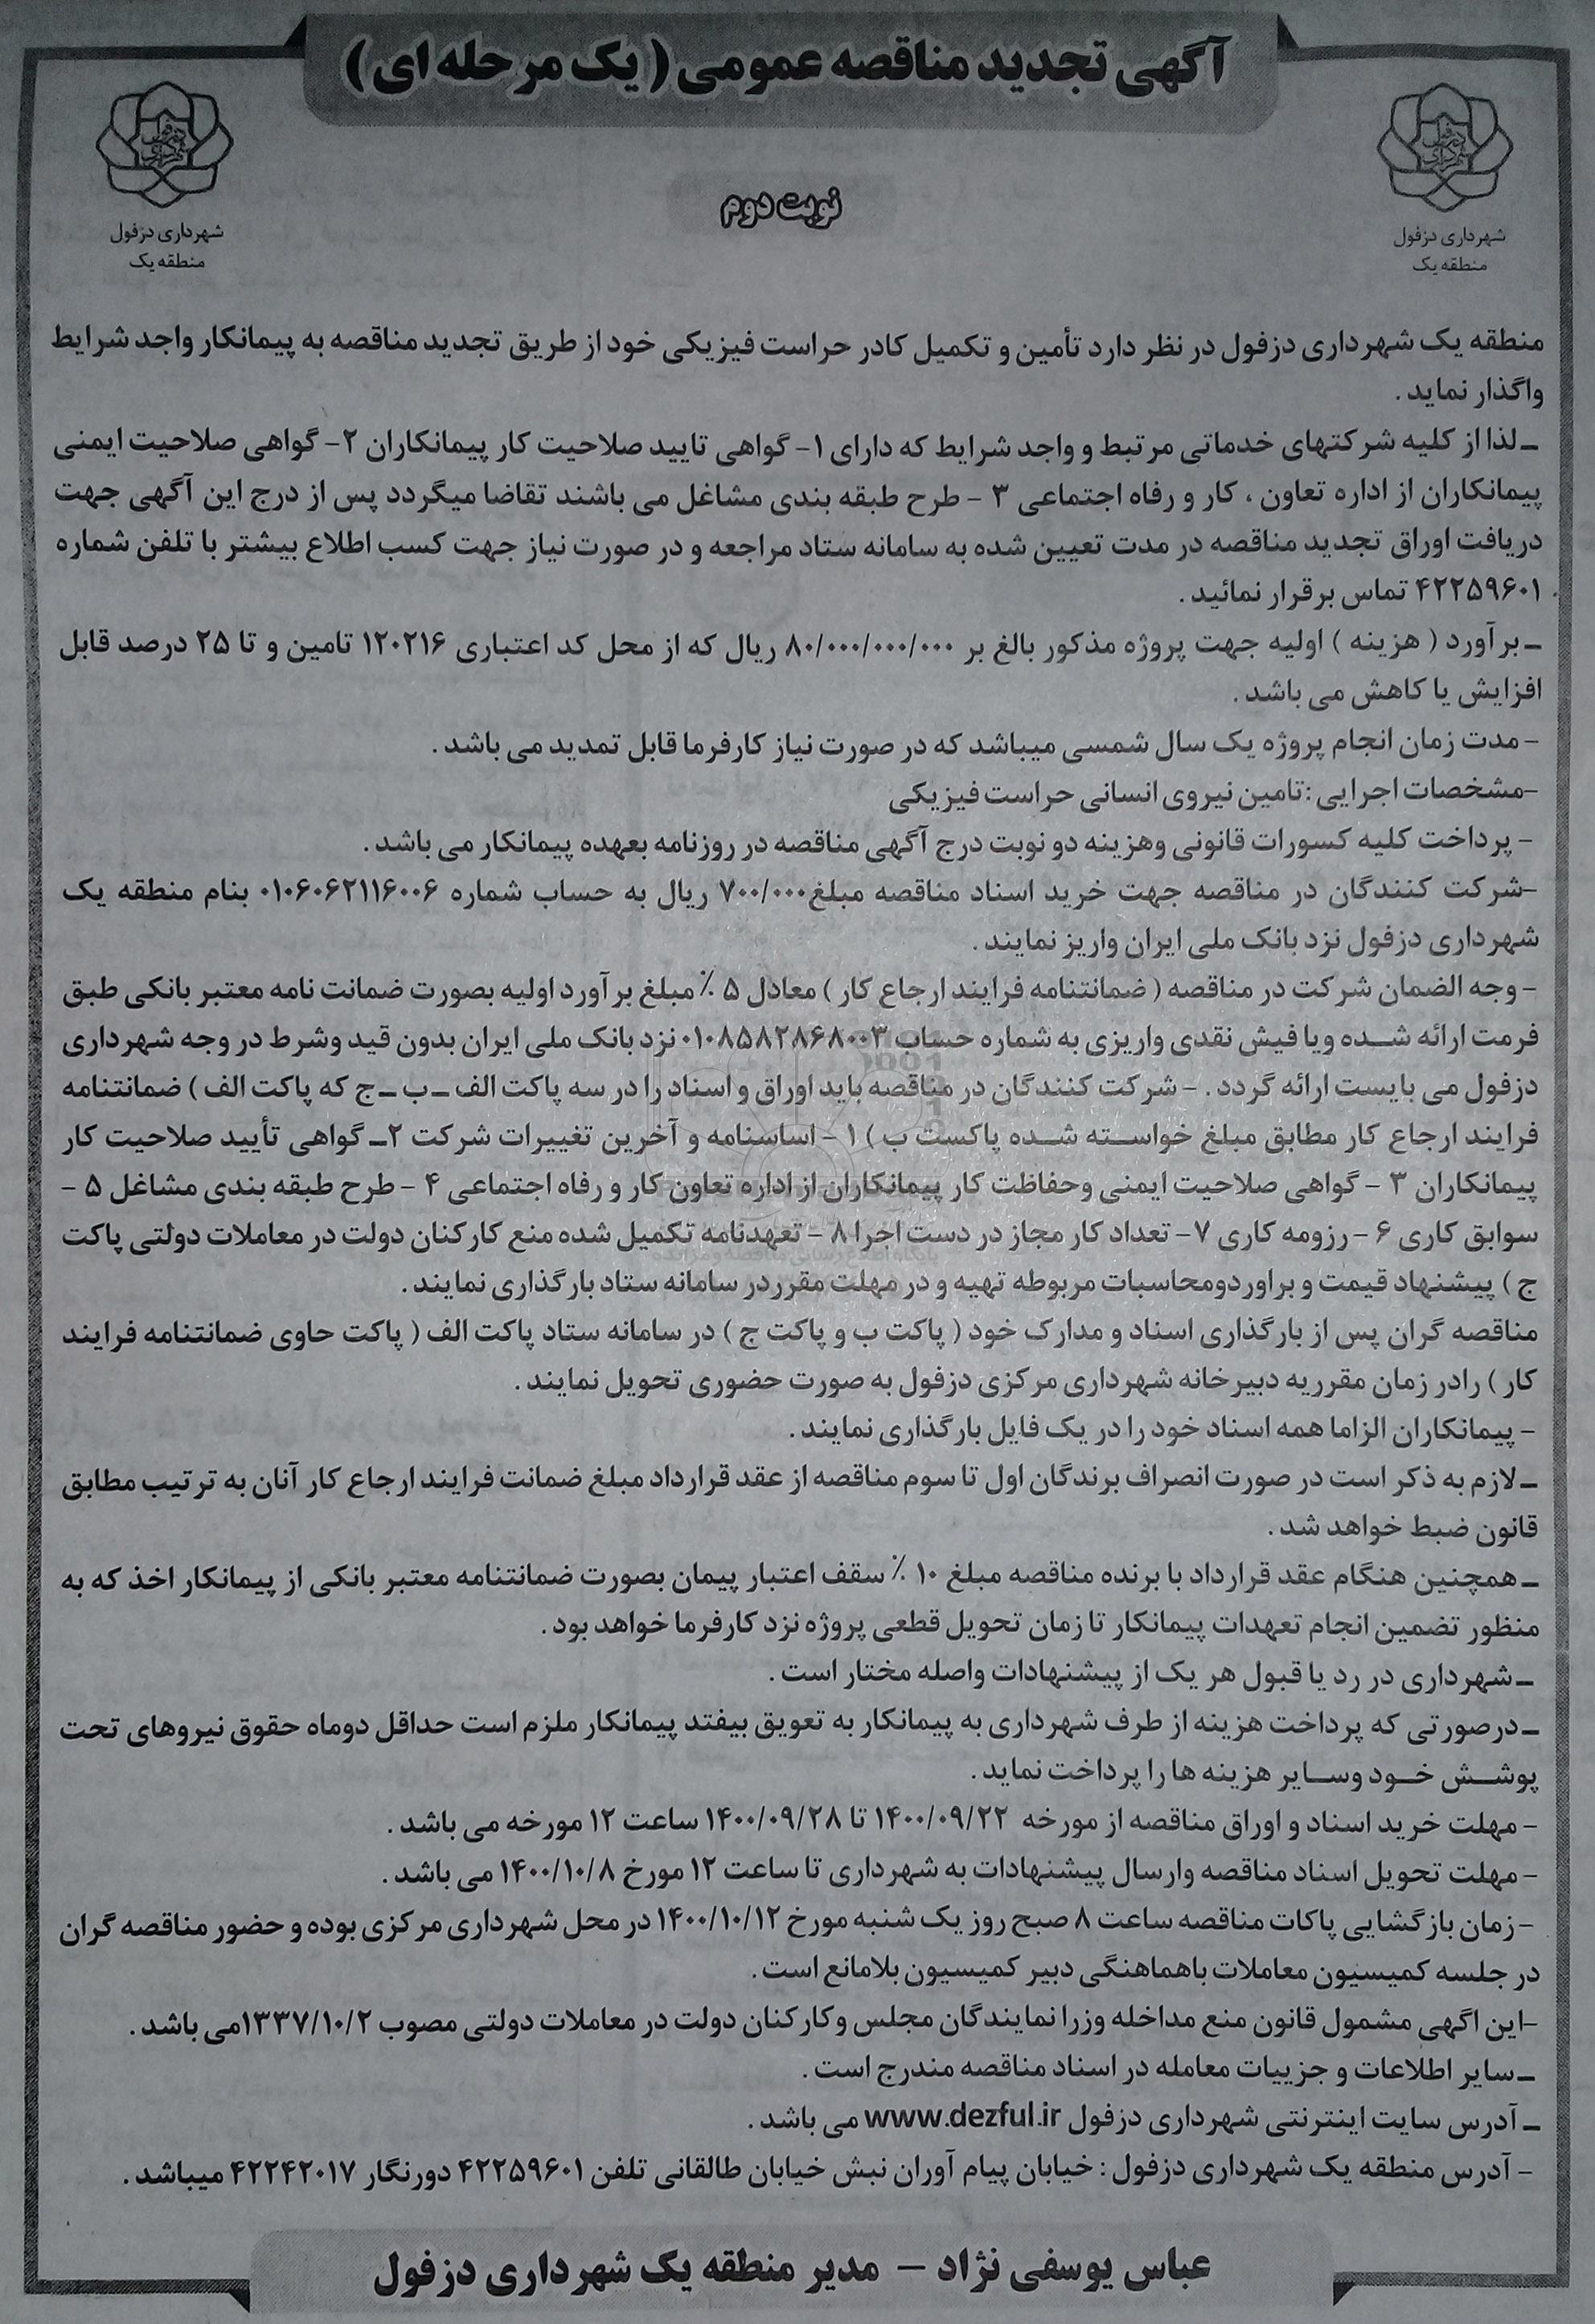 آگهی تجدید مناقصه عمومی ( یک مرحله ای )
شهرداری دزفول
منطقه یک
نوبت دوم
شهرداری دزفول
منطقه یک
منطقه یک شهرداری دزفول در نظر دارد تأمین و تکمیل کادر حراست فیزیکی خود از طریق تجدید مناقصه به پیمانکار واجد شرایط
واگذار نماید .
ـ لذا از کلیه شرکتهای خدماتی مرتبط و واجد شرایط که دارای ۱- گواهی تایید صلاحیت کار پیمانکاران ۲- گواهی صلاحیت ایمنی
پیمانکاران از اداره تعاون ، کار و رفاه اجتماعی ۳ - طرح طبقه بندی مشاغل می باشند تقاضا میگردد پس از درج این آگهی جهت
دریافت اوراق تجدید مناقصه در مدت تعیین شده به سامانه ستاد مراجعه و در صورت نیاز جهت کسب اطلاع بیشتر با تلفن شماره
۴۲۲۵۹۶۰۱ تماس برقرار نمائید .
ـ برآورد ( هزینه ) اولیه جهت پروژه مذکور بالغ بر ۸۰/۰۰۰/۰۰۰/۰۰۰ ریال که از محل کد اعتباری ۱۲۰۲۱۶ تامین و تا ۲۵ درصد قابل
افزایش یا کاهش می باشد .
- مدت زمان انجام پروژه یک سال شمسی میباشد که در صورت نیاز کارفرما قابل تمدید می باشد .
-مشخصات اجرایی :تامین نیروی انسانی حراست فیزیکی
- پرداخت کلیه کسورات قانونی وهزینه دو نوبت درج آگهی مناقصه در روزنامه بعهده پیمانکار می باشد .
-شرکت کنندگان در مناقصه جهت خرید اسناد مناقصه مبلغ۷۰۰/۰۰۰ ریال به حساب شماره ۰۱۰۶۰۶۲۱۱۶۰۰۶ بنام منطقه یک
شهرداری دزفول نزد بانک ملی ایران واریز نمایند .
- وجه الضمان شرکت در مناقصه ( ضمانتنامه فرایند ارجاع کار ) معادل ۵ ٪ مبلغ برآورد اولیه بصورت ضمانت نامه معتبر بانکی طبق
فرمت ارائه شــده ویا فیش نقدی واریزی به شماره حساب ۰۱۰۸۵۸۲۸۶۸۰۰۳ نزد بانک ملی ایران بدون قید وشرط در وجه شهرداری
دزفول می بایست ارائه گردد . - شرکت کنندگان در مناقصه باید اوراق و اسناد را در سه پاکت الف ـ ب ـ ج که پاکت الف ) ضمانتنامه
فرایند ارجاع کار مطابق مبلغ خواســته شــده پاکست ب ) ۱ - اساسنامه و آخرین تغییرات شرکت ۲ـ گواهی تأیید صلاحیت کار
پیمانکاران ۳ - گواهی صلاحیت ایمنی وحفاظت کار پیمانکاران از اداره تعاون کار و رفاه اجتماعی ۴ - طرح طبقه بندی مشاغل ۵ -
سوابق کاری ۶ - رزومه کاری ۷- تعداد کار مجاز در دست اجرا ۸ - تعهدنامه تکمیل شده منع کارکنان دولت در معاملات دولتی پاکت
ج ) پیشنهاد قیمت و براوردومحاسبات مربوطه تهیه و در مهلت مقرردر سامانه ستاد بارگذاری نمایند .
مناقصه گران پس از بارگذاری اسناد و مدارک خود ( پاکت ب و پاکت ج ) در سامانه ستاد پاکت الف ( پاکت حاوی ضمانتنامه فرایند
کار ) رادر زمان مقرربه دبیرخانه شهرداری مرکزی دزفول به صورت حضوری تحویل نمایند .
- پیمانکاران الزاما همه اسناد خود را در یک فایل بارگذاری نمایند .
ـ لازم به ذکر است در صورت انصراف برندگان اول تا سوم مناقصه از عقد قرارداد مبلغ ضمانت فرایند ارجاع کار آنان به ترتیب مطابق
قانون ضبط خواهد شد .
ـ همچنین هنگام عقد قرارداد با برنده مناقصه مبلغ ۱۰ ٪ سقف اعتبار پیمان بصورت ضمانتنامه معتبر بانکی از پیمانکار اخذ که به
منظور تضمین انجام تعهدات پیمانکار تا زمان تحویل قطعی پروژه نزد کارفرما خواهد بود .
ـ شهرداری در رد یا قبول هر یک از پیشنهادات واصله مختار است .
ـ درصورتی که پرداخت هزینه از طرف شهرداری به پیمانکار به تعویق بیفتد پیمانکار ملزم است حداقل دوماه حقوق نیروهای تحت
پوشــش خــود وســایر هزینه ها را پرداخت نماید .
- مهلت خرید اسناد و اوراق مناقصه از مورخه ۱۴۰۰/۰۹/۲۲ تا ۱۴۰۰/۰۹/۲۸ ساعت ۱۲ مورخه می باشد .
- مهلت تحویل اسناد مناقصه وارسال پیشنهادات به شهرداری تا ساعت ۱۲ مورخ ۱۴۰۰/۱۰/۸ می باشد .
- زمان بازگشایی پاکات مناقصه ساعت ۸ صبح روز یک شنبه مورخ ۱۴۰۰/۱۰/۱۲ در محل شهرداری مرکزی بوده و حضور مناقصه گران
در جلسه کمیسیون معاملات باهماهنگی دبیر کمیسیون بلامانع است .
-این اگهی مشمول قانون منع مداخله وزرا نمایندگان مجلس وکارکنان دولت در معاملات دولتی مصوب ۱۳۳۷/۱۰/۲می باشد .
ـ سایر اطلاعات و جزییات معامله در اسناد مناقصه مندرج است .
ـ آدرس سایت اینترنتی شهرداری دزفول www.dezful.ir می باشد .
- آدرس منطقه یک شهرداری دزفول : خیابان پیام آوران نبش خیابان طالقانی تلفن ۴۲۲۵۹۶۰۱ دورنگار ۴۲۲۴۲۰۱۷ میباشد .
عباس یوسفی نژاد – مدیر منطقه یک شهرداری دزفول